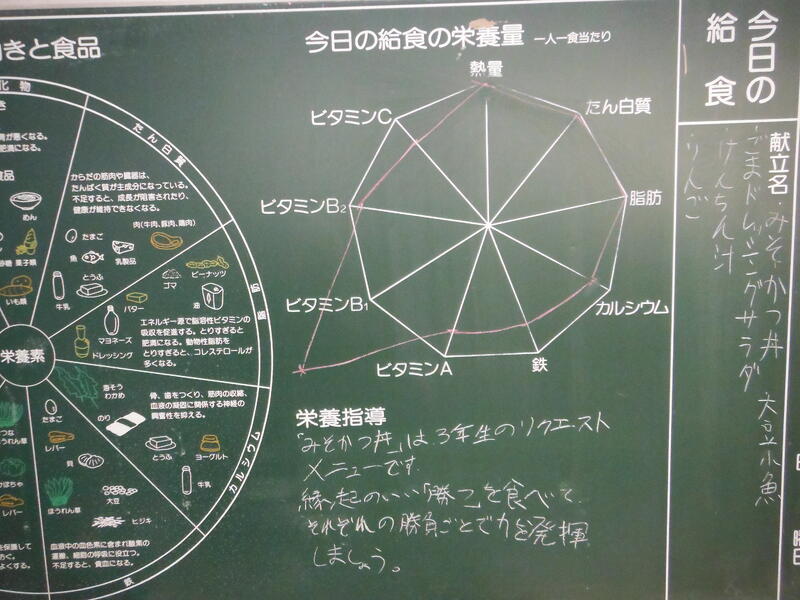 今日の給食
献立名
みそかつ丼 大豆小魚
ごまドレッシングサラダ
けんちん汁
りんご
今日の給食の栄養量 一人一食当たり
熱量
たん白質
脂肪
カルシウム
鉄
ビタミンA
ビタミンB1
ビタミンB2
ビタミンC
栄養指導
「みそかつ丼」は、3年生のリクエスト
メニューです。
縁起のいい「勝つ」を食べて、
それぞれの勝負ごとで力を発揮
しましょう。
きと食品
化物
が悪くなる。
肥満になる。
食品
めん
菓子類
いも類
栄養素
たん白質
からだの筋肉や臓器は、
たんぱく質が主成分になっている。
不足すると、成長が阻害されたり、
健康が維持できなくなる。
肉(牛肉、豚肉、鶏肉)
たまご
魚
乳製品
とうふ
牛乳
脂肪
ピーナッツ
ゴマ
油
バター
マヨネーズ
ドレッシング
エネルギー源で脂溶性ビタミンの
吸収を促進する。とりすぎると
肥満になる。動物性脂肪を
とりすぎると、コレステロールが
多くなる。
カルシウム
海そう
わかめ
のり
骨、歯をつくり、筋肉の収縮、
血液の凝固に関係する神経の
興奮性を抑える。
とうふ
ヨーグルト
牛乳
鉄
たまご
レバー
貝
大豆
ほうれん草
ヒジキ
血液中の血色素に含まれ酸素の
運搬、細胞の呼吸に役立つ。
不足すると、貧血になる。
ほうれん草
かぼちゃ
レバー
を保護して
防ぐ。
よくする。
曜日